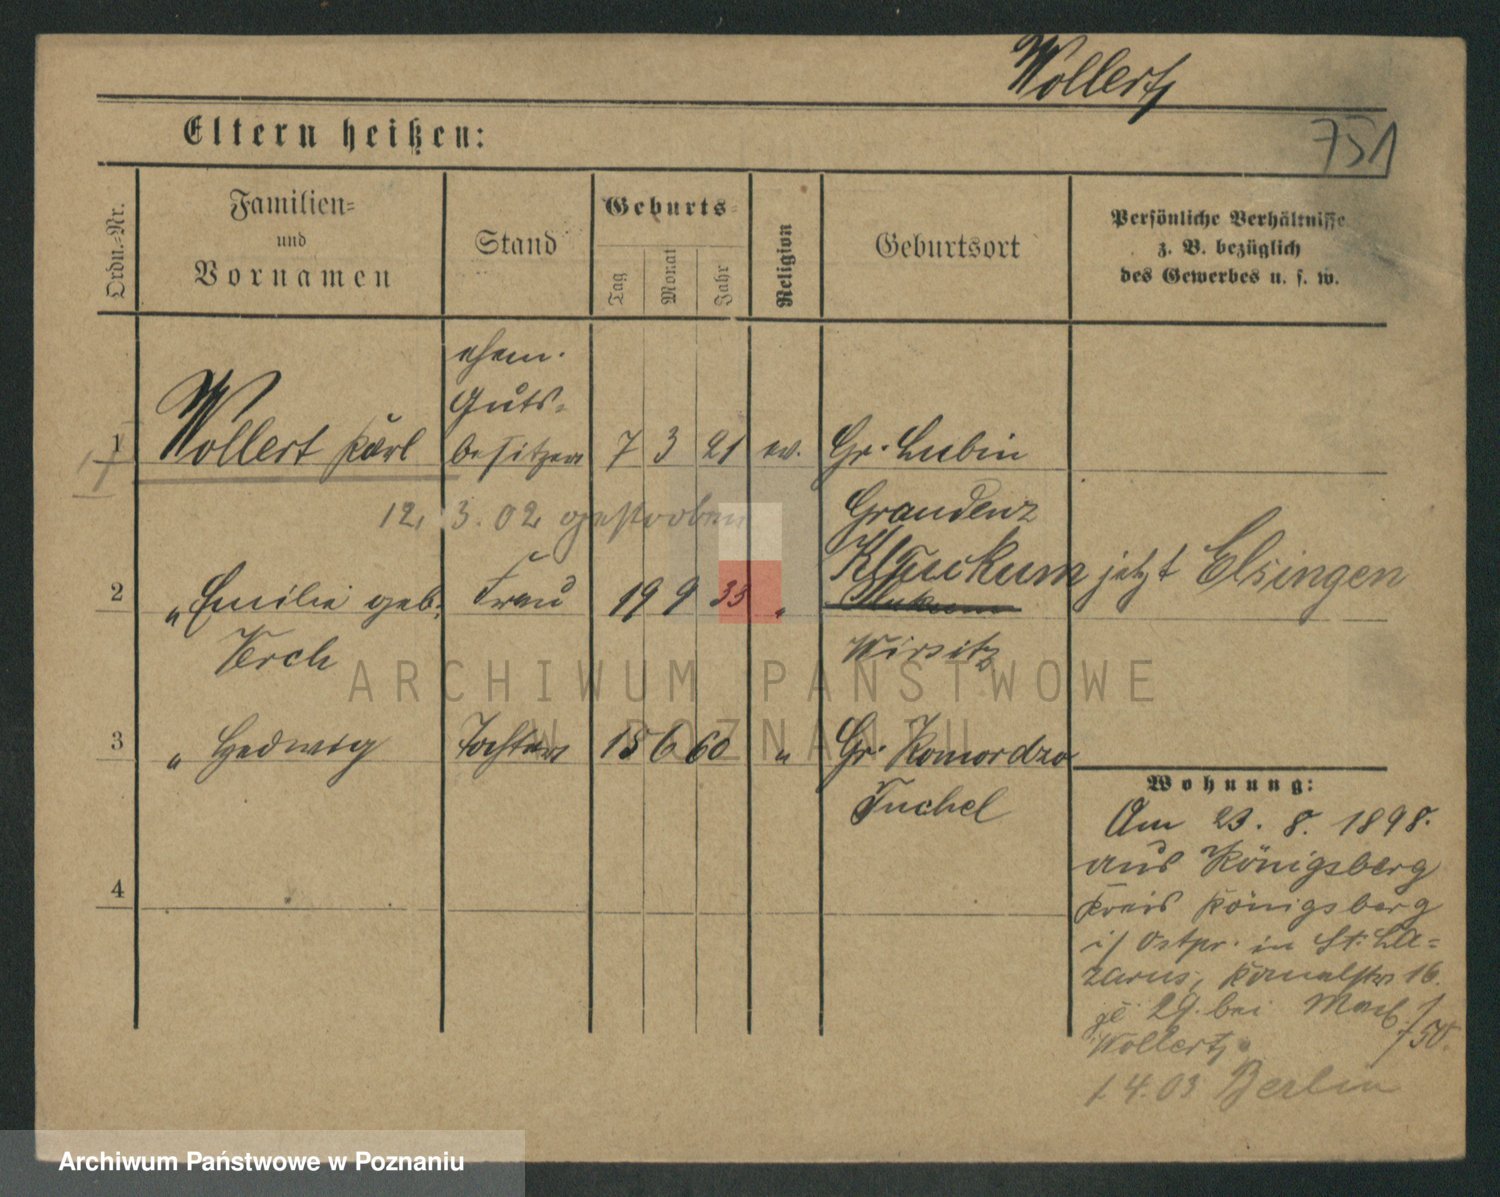 Wollertz
751
Eltern heißen:
Ordn.-Nr.
Familien-
und
Vornamen
Stand
Geburts-
Tag
Monat
Jahr
Religion
Geburtsort
Persönliche Verhältnisse
z. B. bezüglich
des Gewerbes u. s. w.
ehem.
Guts-
1 Wollert Karl besitzer 7 3 21 ev. Gr. Lubin
12. 3. 02 gestorben Graudenz
2 " Emilie geb. Frau 19 9 33 " Klauckum jetzt Elsingen
Verch Wirsitz
3 " Hedwig Tochter 15 6 60 " Gr. Komordzo
Tuchel
4
Wohnung:
Am 23. 8. 1898.
aus Königsberg
Kreis Königsberg
i/ Ostpr. in St. La-
zarus, Kanalstr 16.
29. bei
Wollertz 750.
1.4.03 Berlin
ARCHIWUM PAŃSTWOWE
W POZNANIU
Archiwum Państwowe w Poznaniu